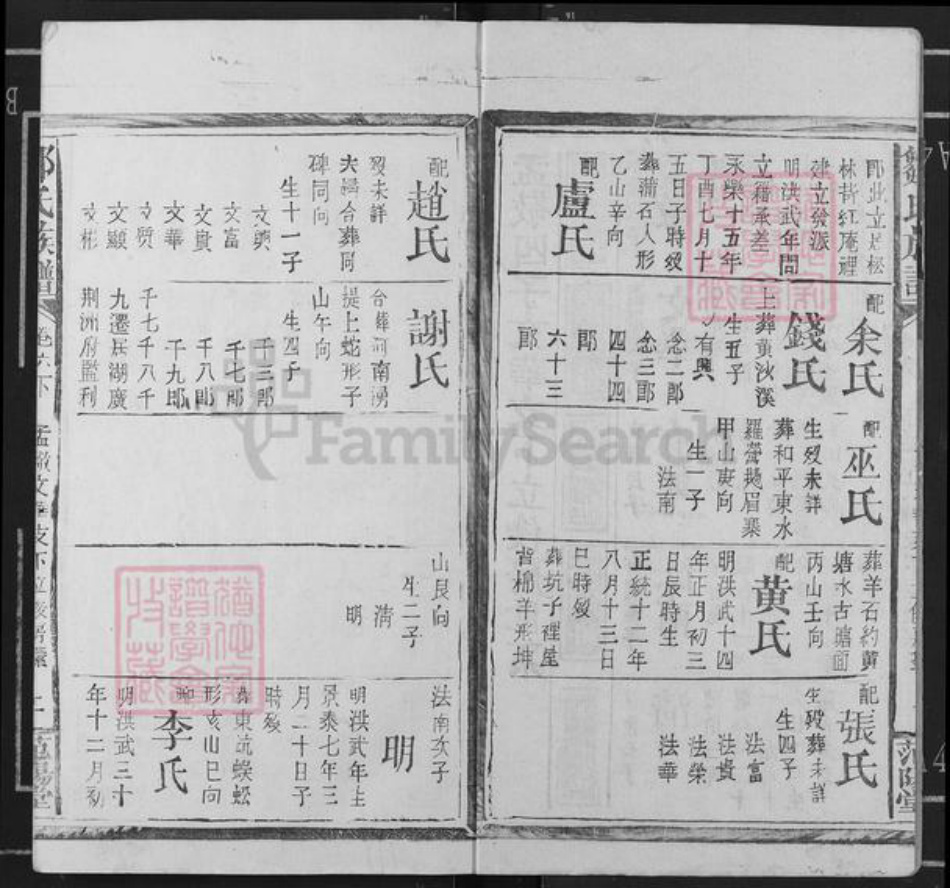 即此立居松
林背紅庵裡
建立發派
明洪武年間
立籍承差
永樂十五年
丁酉七月十
五日子時歿
葬蒲石人形
乙山辛向
配
盧氏
配
余氏
錢氏
上葬黃沙溪
生五子
有興
念二郎
念三郎
四十四
郎
六十三
郎
配
巫氏
生歿未詳
葬和平東水
甲山庚向
生一子
法南
葬羊石約黄
塘水古塘面
丙山壬向
配
黄氏
明洪武十四
年正月初三
日辰時生
正統十二年
八月十三日
巳時歿
葬坑子裡屋
背棉羊形坤
配
張氏
生歿葬未詳
生四子
法富
法貴
法榮
法華
范陽堂
配
趙氏
歿未詳
夫婦合葬同
碑同向
生十一子
文興
文富
文貴
文華
文質
文顯
文彬
謝氏
合葬河南湧
提上蛇形子
山午向
生四子
千三郎
千七郎
千八郎
千九郎
千七千八千
九遷居湖廣
荆洲府監利
山艮向
生二子
清
明
法南次子
明
明洪武年生
景泰七年三
月二十日子
時歿
葬東坑蜈蚣
形亥山巳向
配
李氏
明洪武三十
年十二月初
鄒氏族譜
卷六下
范陽堂
FamilySearch